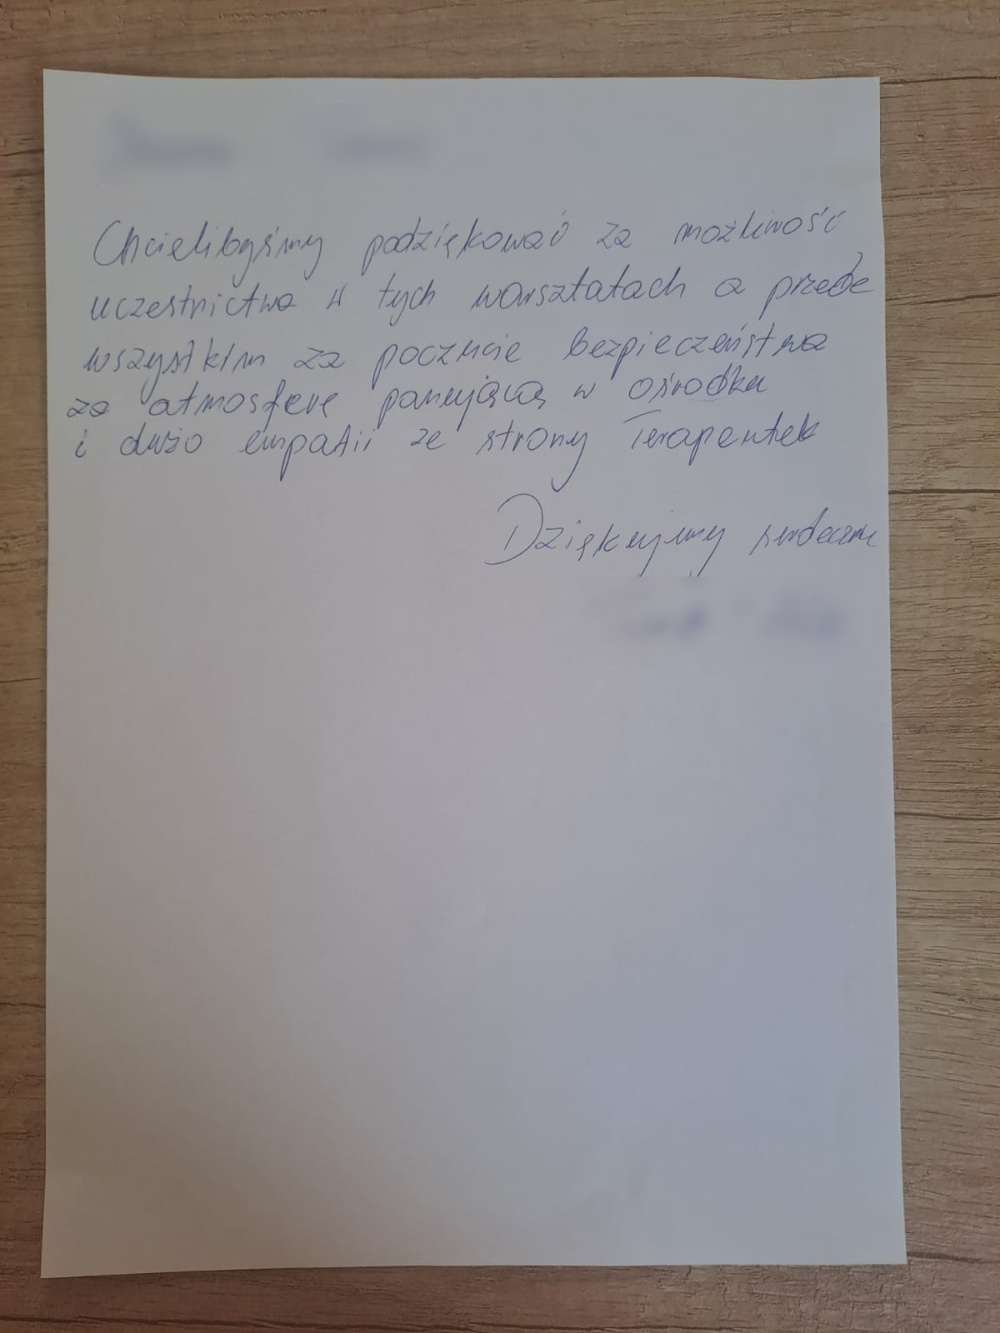 Chcielibyśmy podziękować za możliwość
uczestnictwa w tych warsztatach a przede
wszystkim za poczucie bezpieczeństwa
za atmosferę panującą w ośrodku
i dużo empatii ze strony Terapeutek
Dziękujemy serdecznie